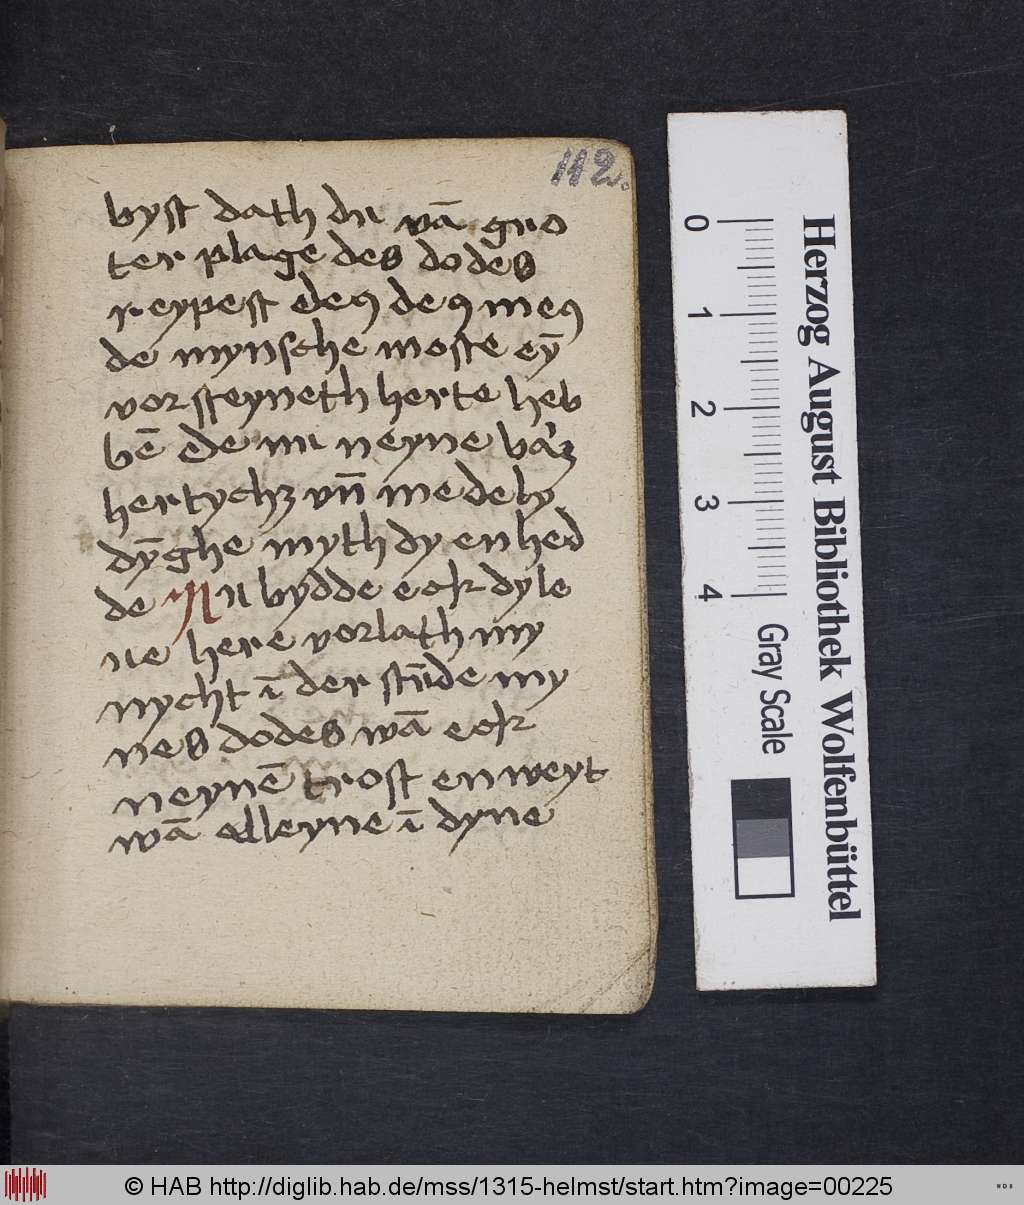 112.
byst dath du vā gro
ter plage des dodes
reypest deꝰ deꝰ meꝰ
de mynsche moste eȳ
vorsteyneth herte heb
bē de nu neyne
hertychz vn̄ medely
dȳghe myth dy en hed
de Nu bydde eck dyle
ue here vorlath my
nycht ī der stūde my
nes dodes wā eck
neynē trost en weyt
wā elleyne ī dyne
Herzog August Bibliothek Wolfenbüttel
0 1 2 3 4
Gray Scale
© HAB http://diglib.hab.de/mss/1315-helmst/start.htm?image=00225